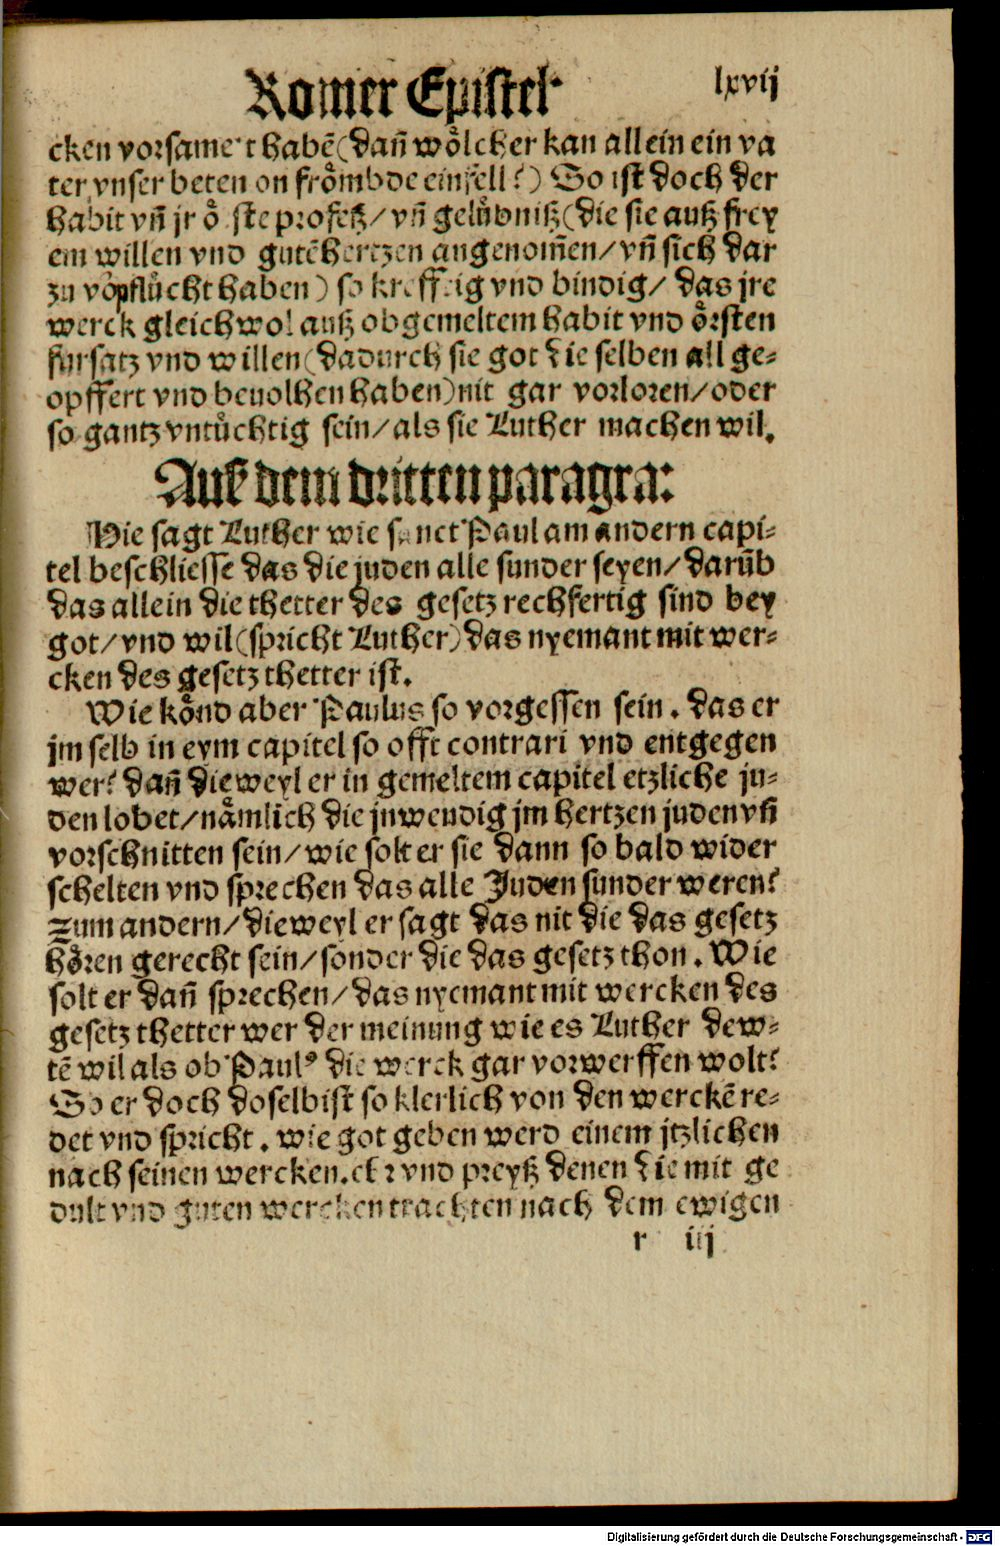 Romer Epistel· lxvij
cken vorsame't habē(dañ wölcher kan allein ein va
ter vnser beten on frömbde einfell?) So ist doch der
habit vñ jr ö ste profeß/vñ gelübniß(die sie auß frey
em willen vnd gutē hertzen angenom̄en/vñ sich dar
zu vöpflücht haben) so krefftig vnd bindig/ das jre
werck gleichwol auß obgemeltem habit vnd örsten
fursatz vnd willen(dadurch sie got die selben all ge⸗
opffert vnd beuolhen haben)nit gar vorloren/oder
so gantz vntüchtig sein/als sie Luther machen wil.
Auß dem dritten paragra:
Hie sagt Luther wie sanct Paul am andern capi⸗
tel beschliesse das die juden alle sunder seyen/darūb
das allein die thetter des gesetz rechfertig sind bey
got/vnd wil(spricht Luther)das nyemant mit wer⸗
cken des gesetz thetter ist.
Wie könd aber Paulus so vorgessen sein. das er
jm selb in eym capitel so offt contrari vnd entgegen
wer? dañ dieweyl er in gemeltem capitel etzliche ju⸗
den lobet/nämlich die jnwendig jm hertzen juden vñ
vorschnitten sein/wie solt er sie dann so bald wider
schelten vnd sprechen das alle Juden sunder weren?
Zum andern/dieweyl er sagt das nit die das gesetz
hören gerecht sein/sonder die das gesetz thon. Wie
solt er dañ sprechen/das nyemant mit wercken des
gesetz thetter wer der meinung wie es Luther dew⸗
tē wil als ob Paulꝰ die werck gar vorwerffen wolt?
So er doch doselbist so klerlich von den werckē re⸗
det vnd spricht. wie got geben werd einem jtzlichen
nach seinen wercken.etꝛ vnd preyß denen die mit ge
dult vnd guten wercken trachten nach dem ewigen
r iij
Digitalisierung gefördert durch die Deutsche Forschungsgemeinschaft - DFG